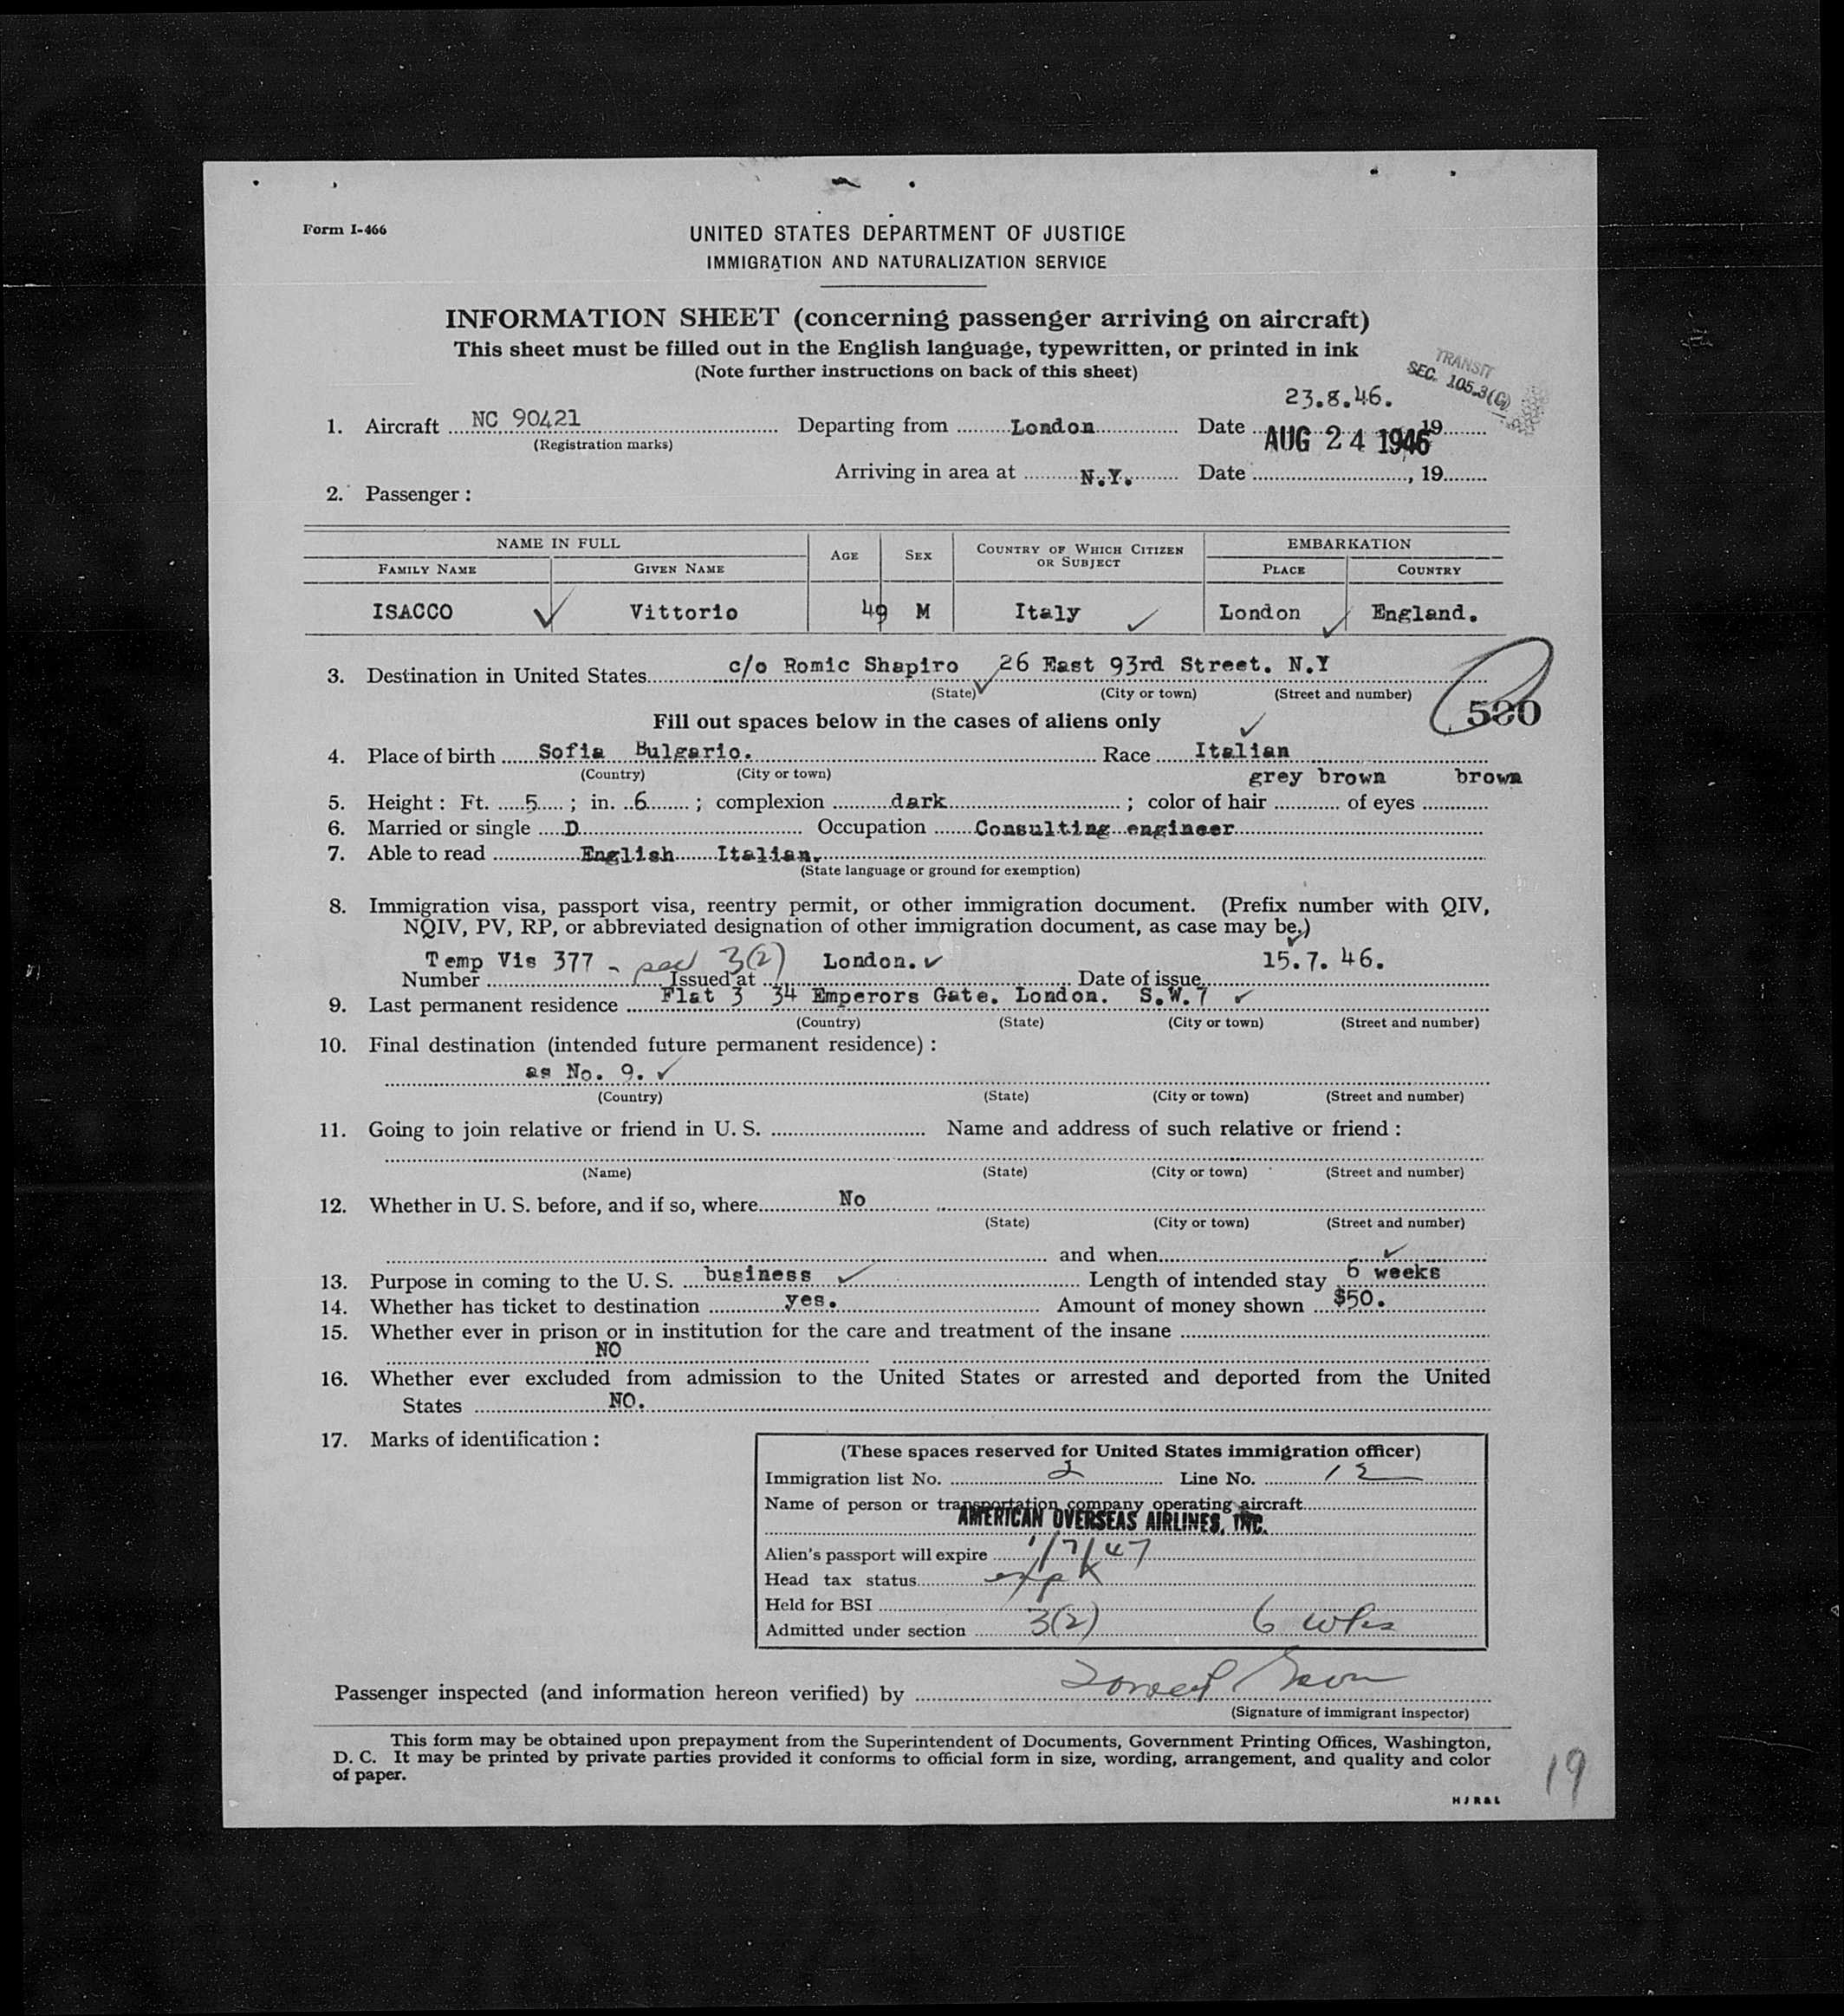 Form I-466
UNITED STATES DEPARTMENT OF JUSTICE
IMMIGRATION AND NATURALIZATION SERVICE
INFORMATION SHEET (concerning passenger arriving on aircraft)
This sheet must be filled out in the English language, typewritten, or printed in ink
(Note further instructions on back of this sheet)
TRANSIT
SEC. 105.3(C)
23.8.46.
1. Aircraft NC 90421 Departing from London Date , 19
(Registration marks)
AUG 24 1946
Arriving in area at N.Y. Date , 19
2. Passenger :
NAME IN FULL AGE SEX COUNTRY OF WHICH CITIZEN OR SUBJECT EMBARKATION
FAMILY NAME GIVEN NAME PLACE COUNTRY
ISACCO Vittorio 49 M Italy London England.
3. Destination in United States c/o Romic Shapiro 26 East 93rd Street. N.Y
(State) (City or town) (Street and number)
500
Fill out spaces below in the cases of aliens only
4. Place of birth Sofia Bulgario. Race Italian
(Country) (City or town)
grey brown brown
5. Height : Ft. 5 ; in. 6 ; complexion dark ; color of hair of eyes
6. Married or single D Occupation Consulting engineer
7. Able to read English Italian.
(State language or ground for exemption)
8. Immigration visa, passport visa, reentry permit, or other immigration document. (Prefix number with QIV,
NQIV, PV, RP, or abbreviated designation of other immigration document, as case may be.)
Temp Vis 377 - 3(2) London. 15.7. 46.
Number Issued at Date of issue
9. Last permanent residence Flat 3 34 Emperors Gate. London. S.W.7
(Country) (State) (City or town) (Street and number)
10. Final destination (intended future permanent residence) :
as No. 9.
(Country) (State) (City or town) (Street and number)
11. Going to join relative or friend in U. S. Name and address of such relative or friend :
(Name) (State) (City or town) (Street and number)
12. Whether in U. S. before, and if so, where No
(State) (City or town) (Street and number)
and when
13. Purpose in coming to the U. S. business Length of intended stay 6 weeks
14. Whether has ticket to destination yes. Amount of money shown $50.
15. Whether ever in prison or in institution for the care and treatment of the insane
NO
16. Whether ever excluded from admission to the United States or arrested and deported from the United
States NO.
17. Marks of identification :
(These spaces reserved for United States immigration officer)
Immigration list No. 2 Line No. 12
Name of person or transportation company operating aircraft
AMERICAN OVERSEAS AIRLINES, INC.
Alien's passport will expire 1/7/47
Head tax status
Held for BSI
Admitted under section 3(2) 6 wks
Passenger inspected (and information hereon verified) by
(Signature of immigrant inspector)
This form may be obtained upon prepayment from the Superintendent of Documents, Government Printing Offices, Washington,
D. C. It may be printed by private parties provided it conforms to official form in size, wording, arrangement, and quality and color
of paper.
19
H J R & L